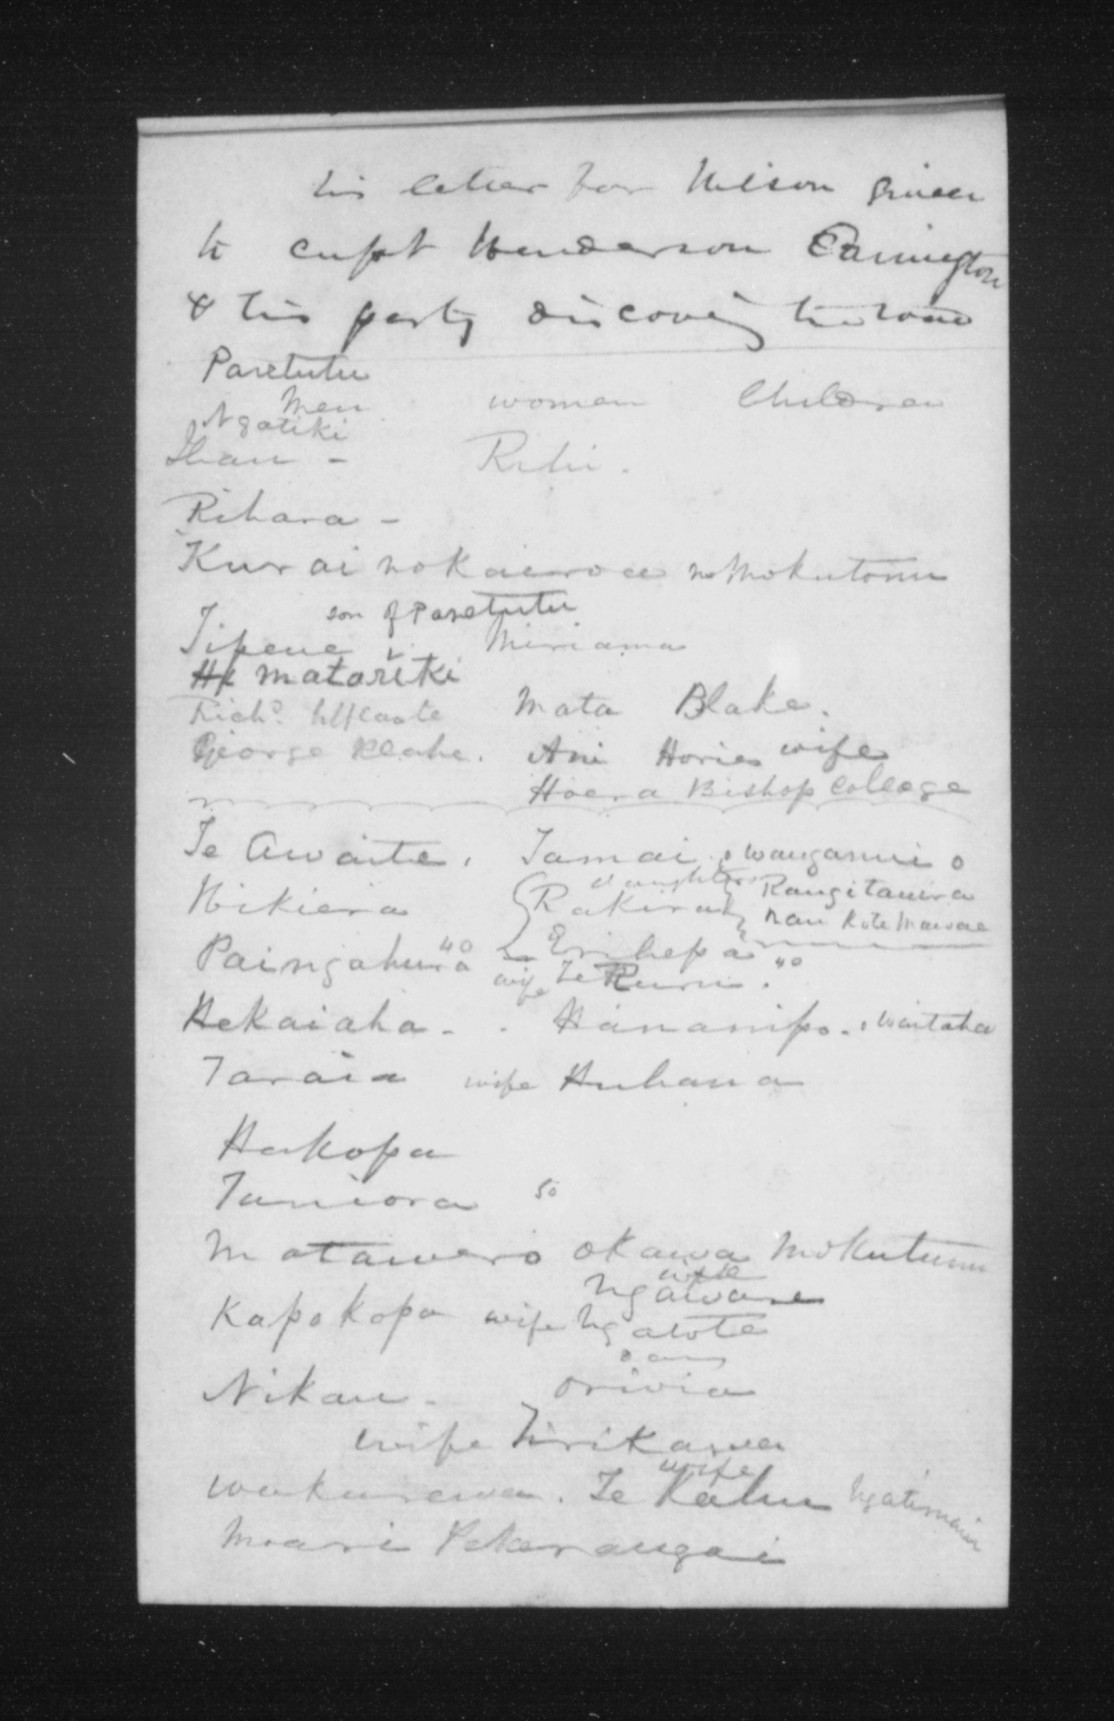 his letter for Nelson given
to Capt Henderson Carrington
& his party discovg the
Paretutu
Men women Children
Ngatiki
Ihau - Rihi.
Rihara -
Kurai no Kaieroa no Mokutoru
son of Paretutu
Tipene Miriama
He matariki
Richd. hlfcaste Mata Blake.
George Keahe. Ani Hories wife
Hoera Bishop College
Te Awaite. Tamai. wanganui
daughter Rangitauira
Hikiera Rakira nau Kote Mawae
Paingahura 40 Erihepa
wife Te Ruru. 40
Hekaiaha - . Hananipo. Waitaha
Taraia wife Huhana
Hakopa
Taniora 50
Matawero okawa Mokutunu
wife
Ngawara
Kapokopa wife Ngawte
Nikau - Orivia
wife Tirikawa
wife
wakarewa. Te Kahu Ngatimaru
Moari Pekerangai